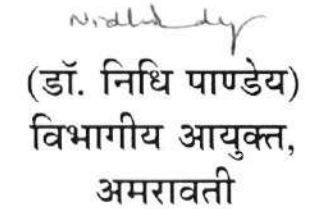 (डॉ. निधि पाण्डेय)
विभागीय आयुक्त,
अमरावती